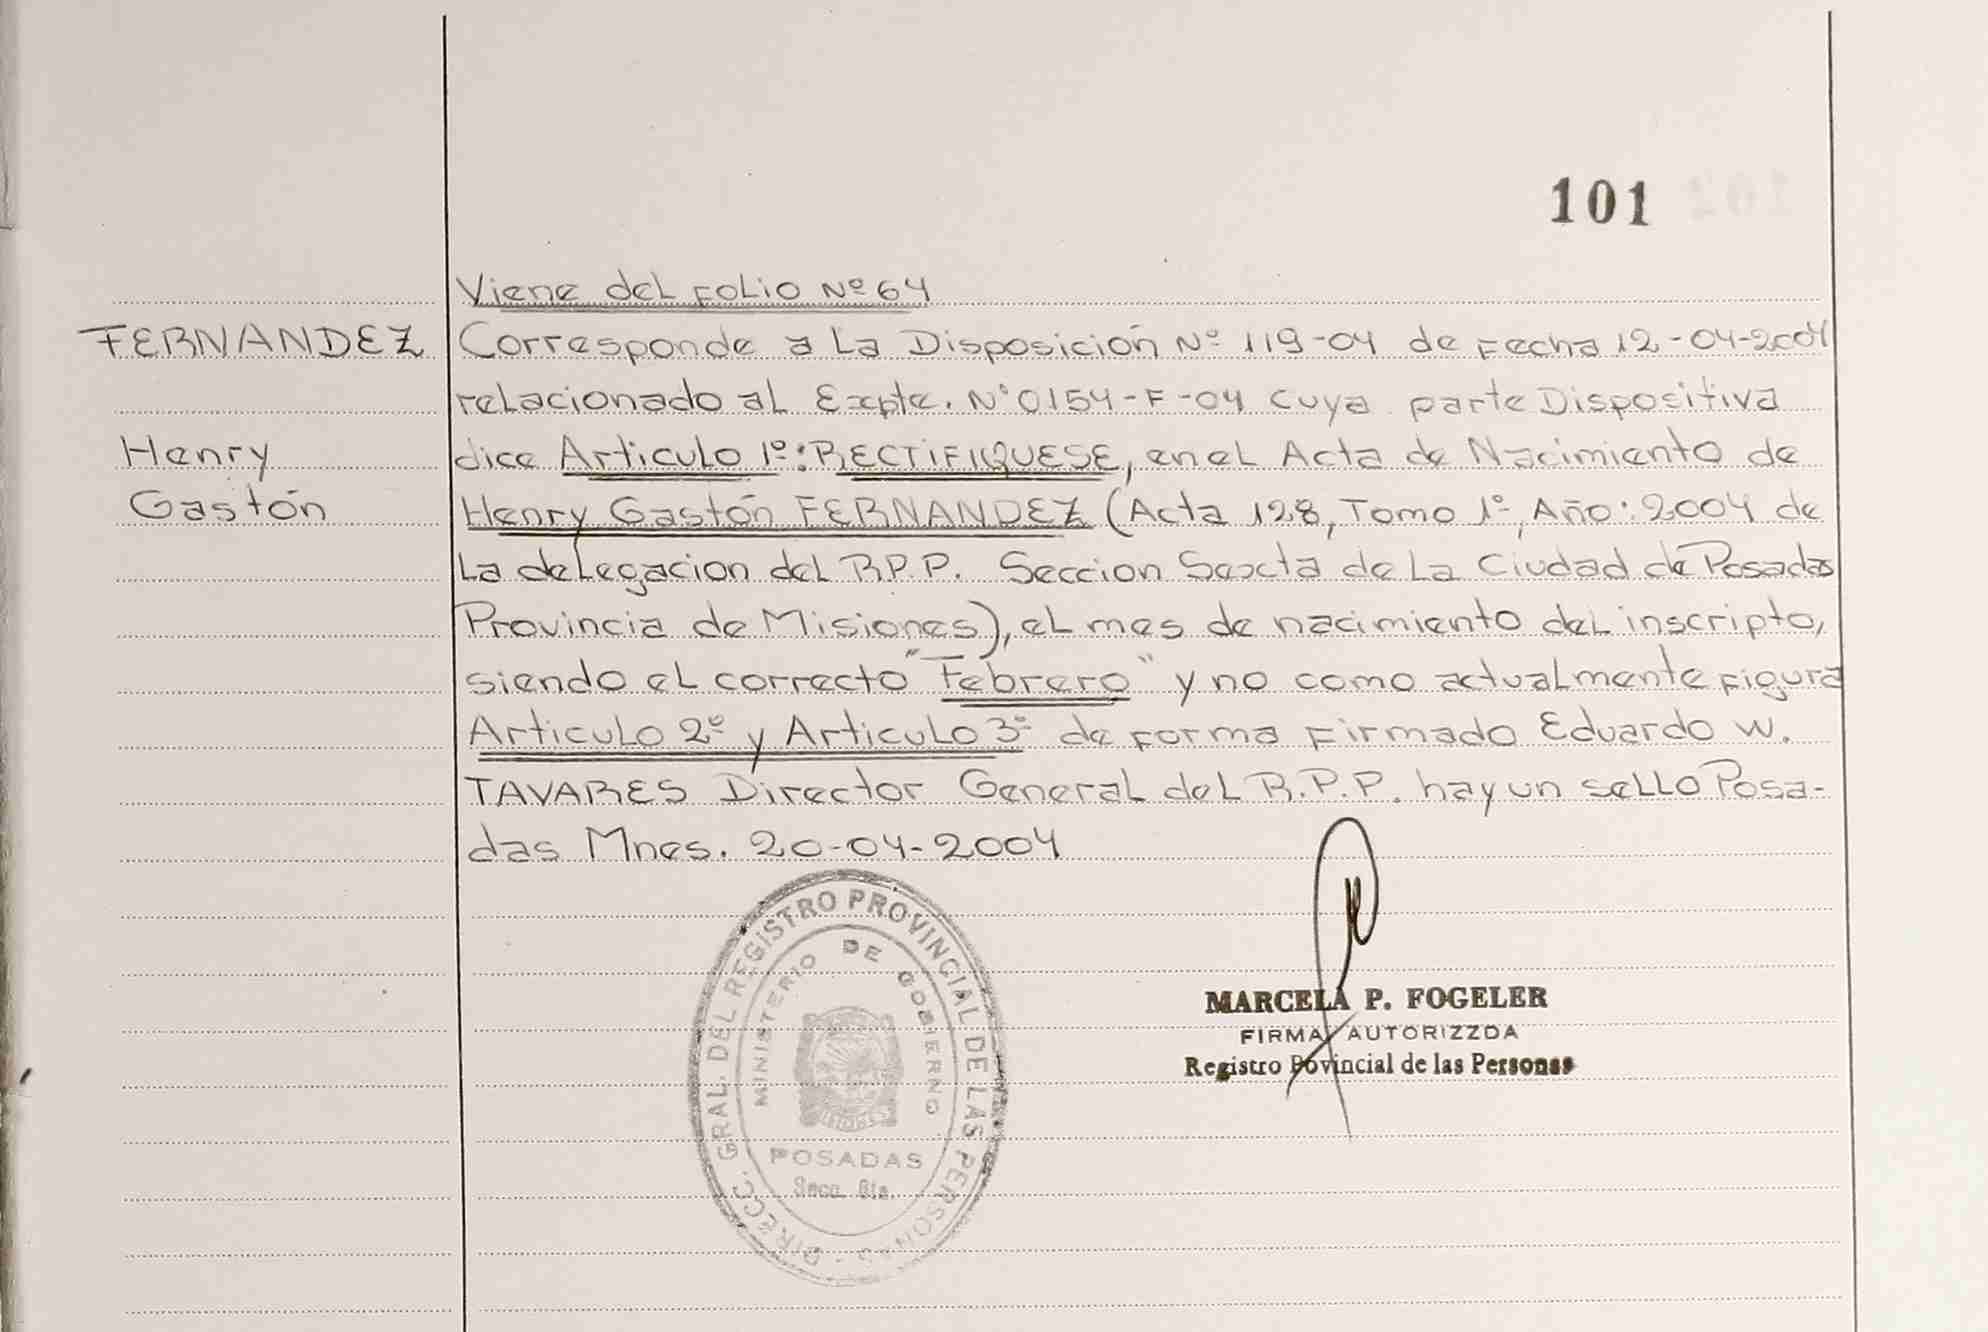 101
Viene del Folio Nº 64
FERNANDEZ
Corresponde a La Disposición Nº 119-04 de Fecha 12-04-2004
relacionado al Expte. Nº 0154-F-04 cuya parte Dispositiva
Henry
dice Articulo 1º: RECTIFIQUESE, en el Acta de Nacimiento de
Gastón
Henry Gastón FERNANDEZ (Acta 128, Tomo 1º, Año: 2004 de
La delegacion del R.P.P. Seccion Sexta de La Ciudad de Posadas
Provincia de Misiones), el mes de nacimiento del inscripto,
siendo el correcto "Febrero" y no como actualmente figura
Articulo 2º y Articulo 3º de forma Firmado Eduardo W.
TAVARES Director General del R.P.P. hay un sello Posa-
das Mnes. 20-04-2004
DIRECC. GRAL. DEL REGISTRO PROVINCIAL DE LAS PERSONAS
MINISTERIO DE GOBIERNO
MISIONES
POSADAS
Secc. 6ta.
MARCELA P. FOGELER
FIRMA AUTORIZZDA
Registro Povincial de las Personas